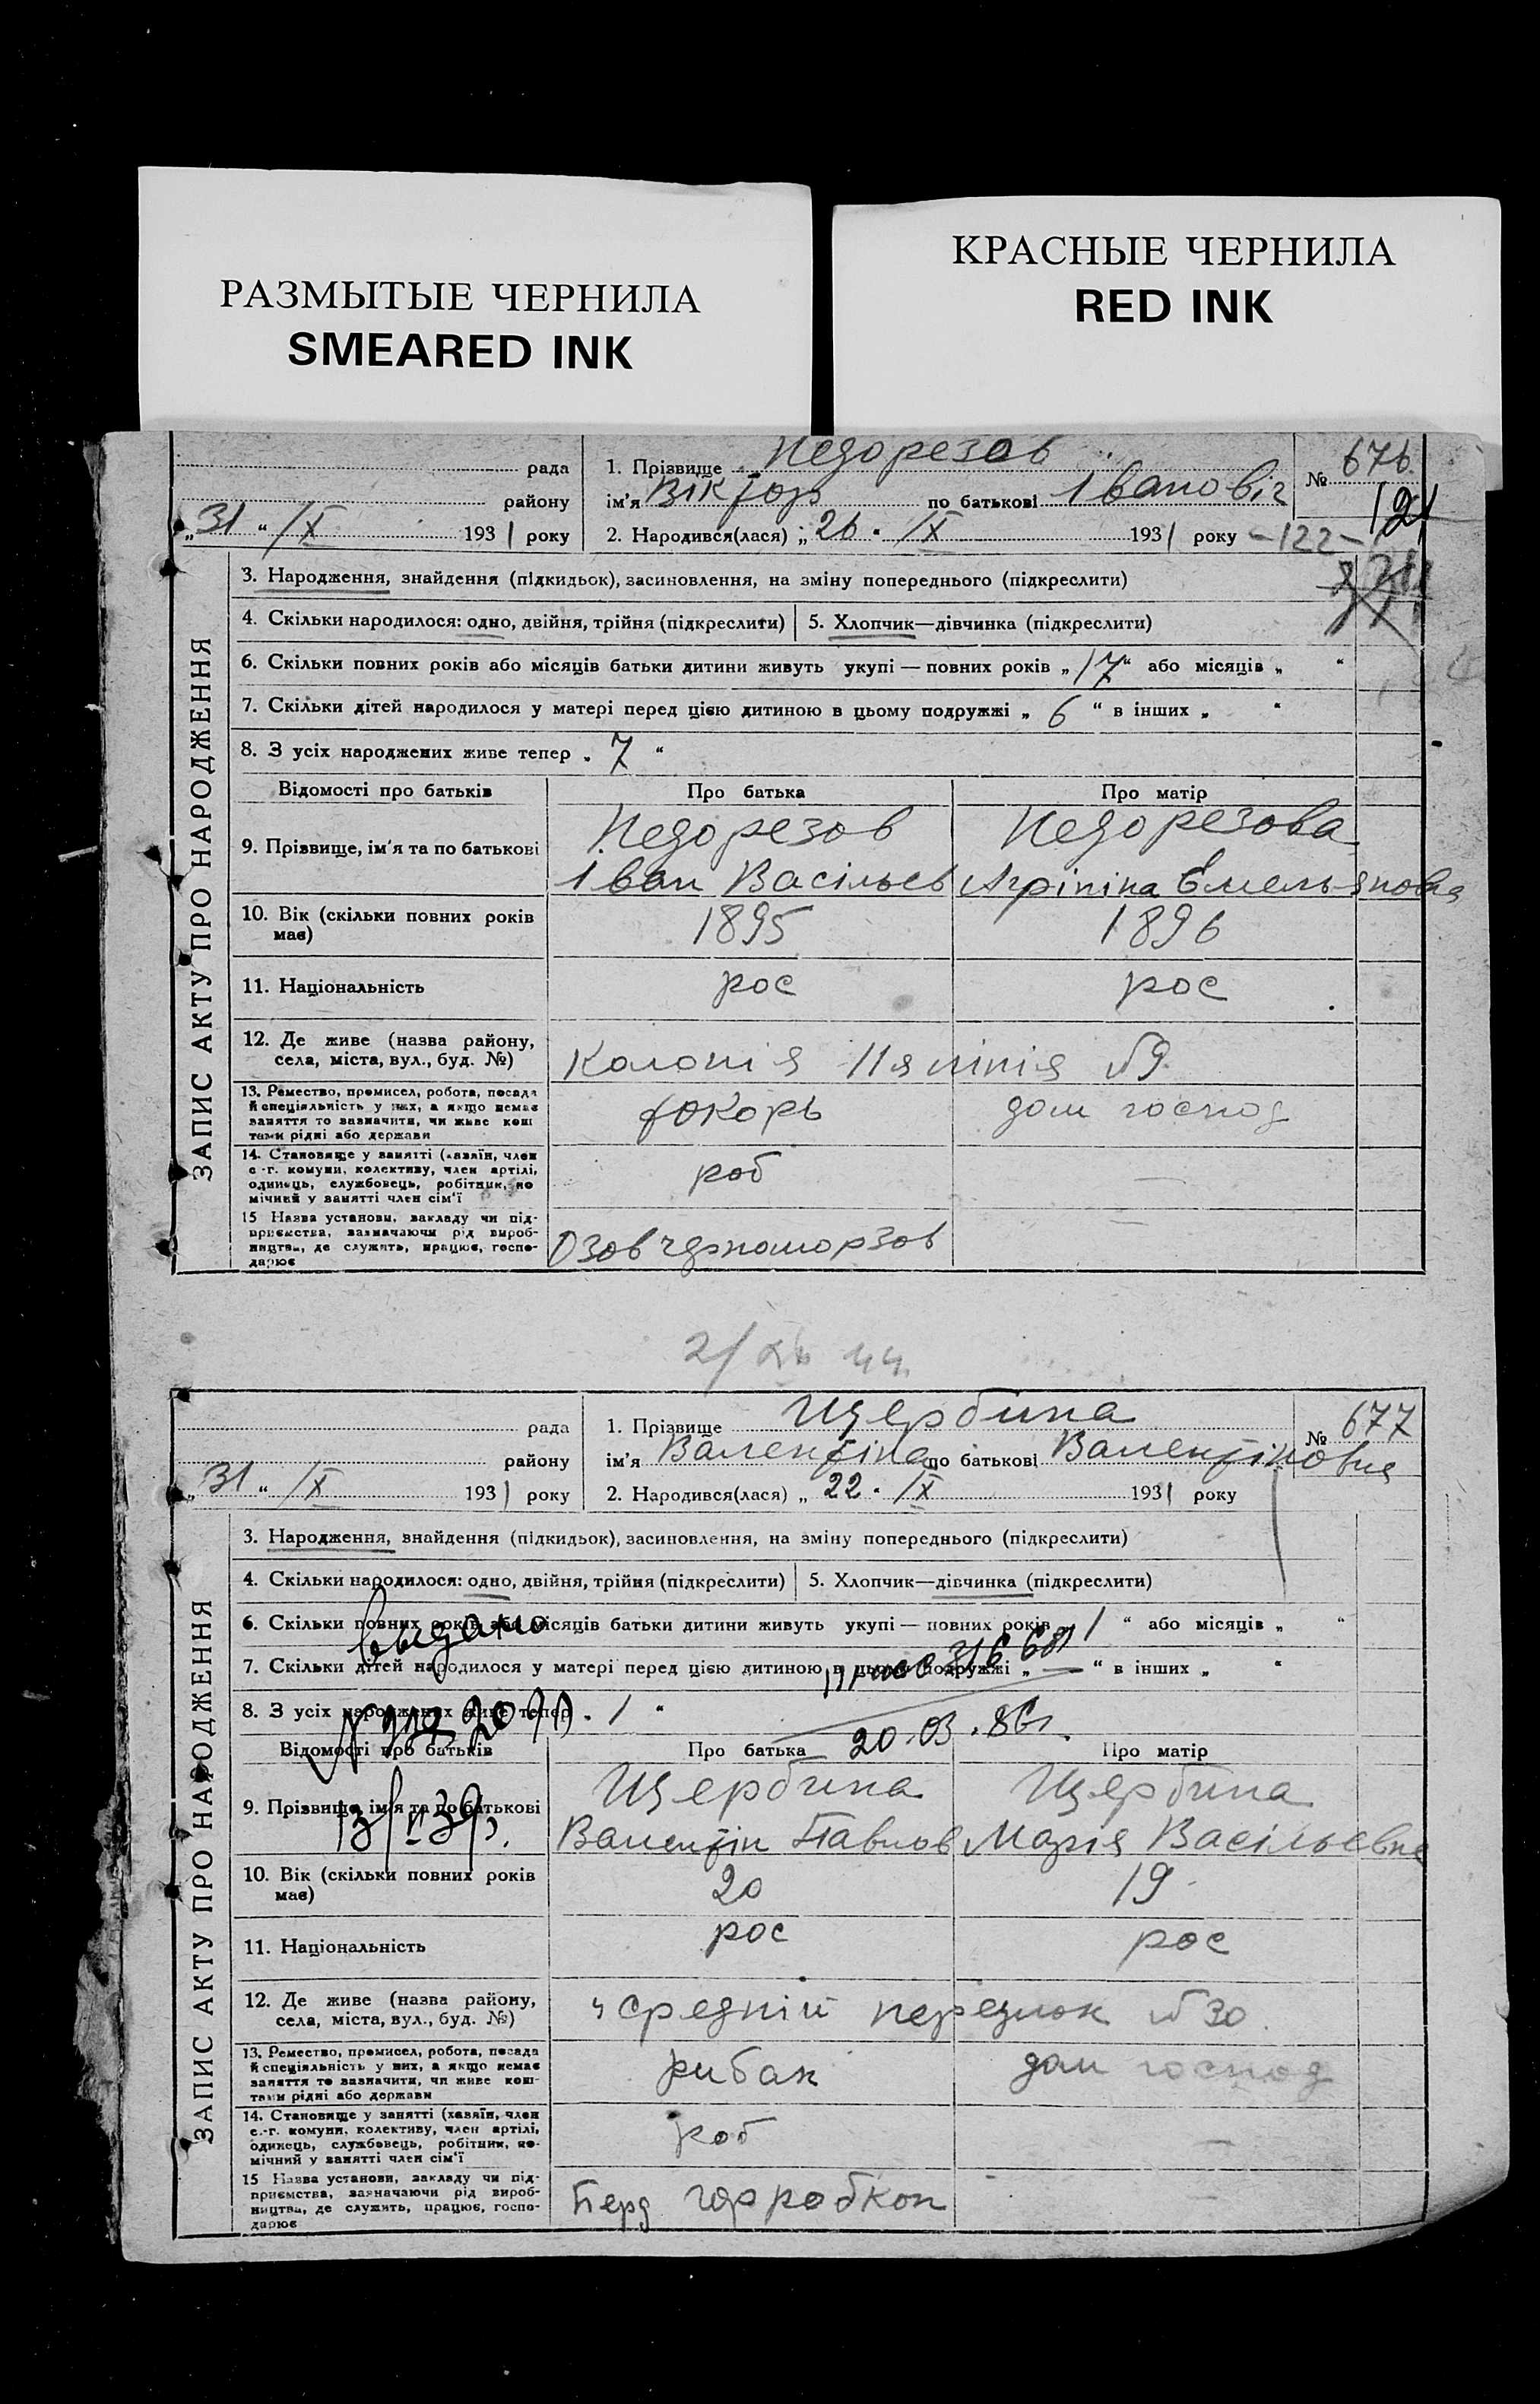 РАЗМЫТЫЕ ЧЕРНИЛА
SMEARED INK
КРАСНЫЕ ЧЕРНИЛА
RED INK
рада
району
„31 “ IX 1931 року
1. Прізвище Недорезов
ім’я Віктор по батькові Івановіч
2. Народився(лася) „ 26 “ IX 1931 року
№ 676
121
-122-
ЗАПИС АКТУ ПРО НАРОДЖЕННЯ
3. Народження, знайдення (підкидьок), засиновлення, на зміну попереднього (підкреслити)
4. Скільки народилося: одно, двійня, трійня (підкреслити) 5. Хлопчик—дівчинка (підкреслити)
6. Скільки повних років або місяців батьки дитини живуть укупі — повних років „ 17 “ або місяців „ “
7. Скільки дітей народилося у матері перед цією дитиною в цьому подружжі „ 6 “ в інших „ “
8. З усіх народжених живе тепер „ 7 “
Відомості про батьків Про батька Про матір
9. Прізвище, ім’я та по батькові
Недорезов Недорезова
Іван Васільев Агріпіна Емельяновна
10. Вік (скільки повних років має) 1895 1896
11. Національність рос рос
12. Де живе (назва району, села, міста, вул., буд. №) Колонія 11я лінія №9
13. Ремество, промисел, робота, посада й спеціяльність у них, а якщо немає заняття то зазначити, чи живе коштами рідні або держави
токорь дом господ
14. Становище у занятті (хазяїн, член с.-г. комуни, колективу, член артілі, одинець, службовець, робітник, помічний у занятті член сім’ї
роб —
15 Назва установи, закладу чи підприємства, зазначаючи рід виробництва, де служить, працює, господарює
Озовчерноморзов
рада
району
„31 “ IX 1931 року
1. Прізвище Щербина
ім’я Валентіна по батькові Валентіновна
2. Народився(лася) „ 22 “ IX 1931 року
№ 677
ЗАПИС АКТУ ПРО НАРОДЖЕННЯ
3. Народження, знайдення (підкидьок), засиновлення, на зміну попереднього (підкреслити)
4. Скільки народилося: одно, двійня, трійня (підкреслити) 5. Хлопчик—дівчинка (підкреслити)
6. Скільки повних років або місяців батьки дитини живуть укупі — повних років „ 1 “ або місяців „ “
выдано
7. Скільки дітей народилося у матері перед цією дитиною в цьому подружжі „ — “ в інших „ “
8. З усіх народжених живе тепер „ 1 “
20.03.86г.
Відомості про батьків Про батька Про матір
9. Прізвище, ім’я та по батькові
Щербина Щербина
Валентін Павлов Марія Васільевна
10. Вік (скільки повних років має) 20 19
11. Національність рос рос
12. Де живе (назва району, села, міста, вул., буд. №) 4 Средній переулок №30
13. Ремество, промисел, робота, посада й спеціяльність у них, а якщо немає заняття то зазначити, чи живе коштами рідні або держави
рибак дом господ
14. Становище у занятті (хазяїн, член с.-г. комуни, колективу, член артілі, одинець, службовець, робітник, помічний у занятті член сім’ї
роб —
15 Назва установи, закладу чи підприємства, зазначаючи рід виробництва, де служить, працює, господарює
Берд горробкоп —